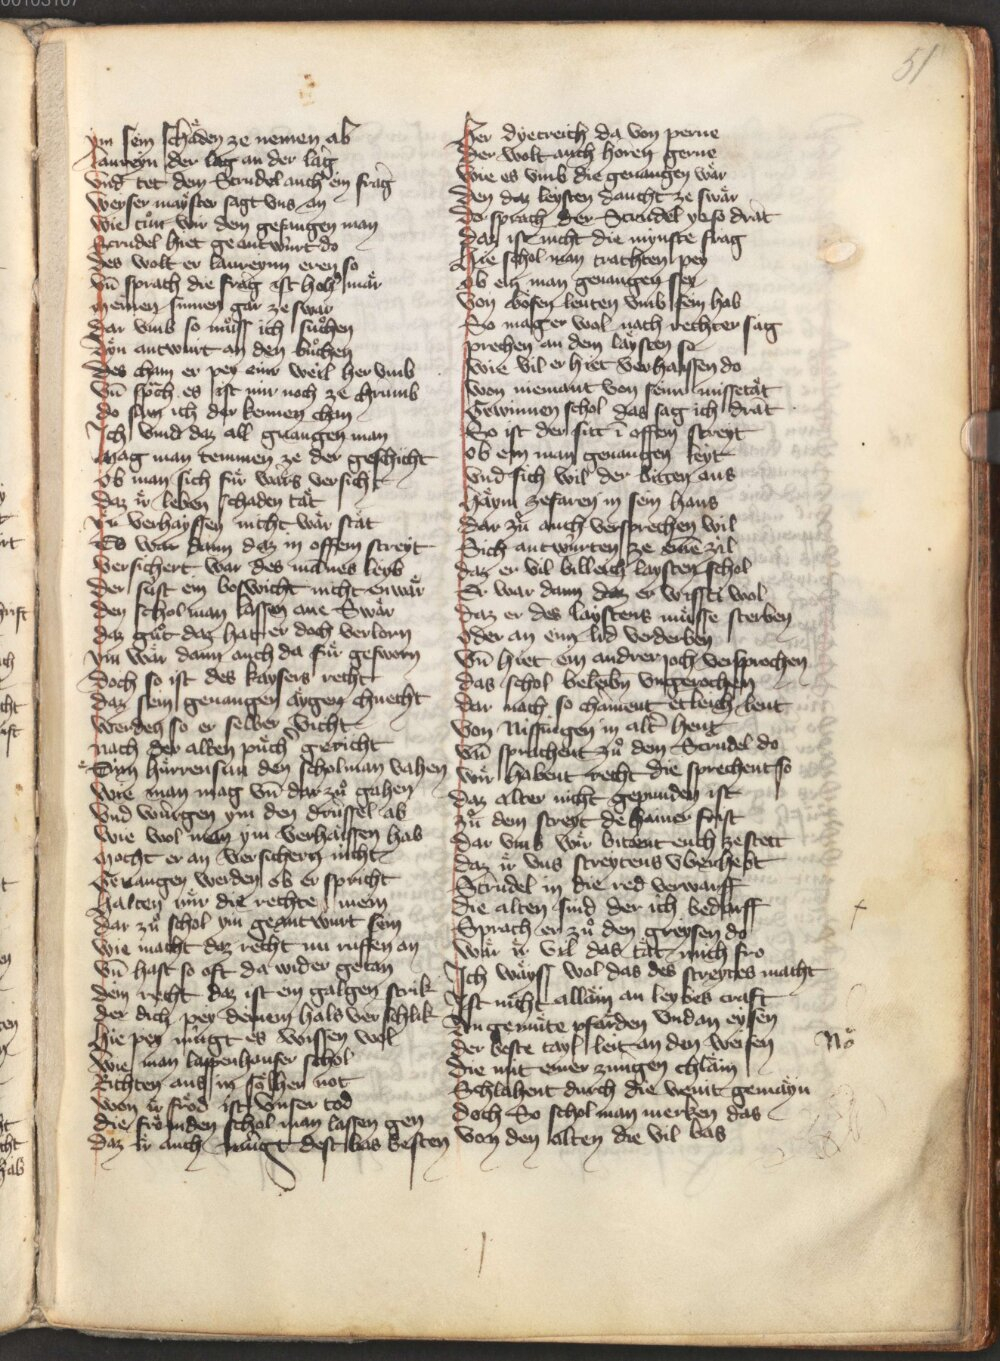 51
ym sein schäden ze nemen ab
Laureyn der lag an der lag
Und tet dem Strudel auch ein frag
Werser mayster sagt uns an
Wie tuͦn wir dem gefangen man
Strudel hiet geantwurt do
Des wolt er laureynn eren so
Vn̄ sprach die frag ist
meinen sinnen gar ze swär
Dar umb so muͦss ich suͦchen
Dyn antwurt an den buͦchen
Des cham er pey einr weil her umb
Vn̄ spͦch es ist mir noch ze chrumb
do san ich der kennen chan
Ich vind daz all geuangen man
Mag man temmen ze der geschicht
Ob man sich für wärs versicht
Daz ir leben schaden tät
Ir verhayssen nicht wär stät
Es wär dann daz in offem streyt
Versichert wär des mannes leyb
Der süst ein boswicht nicht enwär
Den schol man lassen ane swär
Daz guͦt daz hat er doch verlorn
Ym wär dann auch da für gesworn
Doch so ist des kaysers recht
Daz sein geuangen aygen chnecht
Werden so er selber vicht
Nach der alben puͤch gericht
Dym hürrensun den schol man vahen
Wie man mag vn̄ dar zuͦ gahen
Und würgen ym den drüssel ab
Wie wol man ym verhaissen hab
Mocht er an versichern nicht
Geuangen werden ob er spricht
Halten mir die rechte mein
Dar zuͦ schol ym geantwurt sein
Wie macht daz recht nu rüffen an
Vn̄ hast so oft da wider getan
Dein recht daz ist ein galgen strik
Der dich pey deinem hals ver schlik
Hie pey mügt es wissen wol
Wie man lappenhauser schol
Richten aus in sölher not
Won ir fröd ist unser tod
Die frömden schol man lassen gen
Daz ir auch mügt dest bas besten
Her dyetreich da von perne
Der wolt auch horen gerne
Wie es umb die geuangen wär
Den daz leysten daucht ze swär
Do sprach der Strudel yesso drat
Daz ist nicht die mynste frag
Hie schol man trachten pey
Ob ein man geuangen sey
Von bösen leuten umb sein hab
So mag er wol nach rechter sag
Prechen an dem laysten so
Wie vil er hiet verhayssen do
Won niemant von seinr missetät
Gewinnen schol das sag ich drat
So ist der sitt ī offem streyt
Ob ein man geuangen leyt
Und sich wil der bitten aus
Haym zefaren in sein haus
Dar zuͦ auch versprechen wil
Sich antwürten ze eine zil
Daz er vil billeich laysten schol
Er wär dann daz er wissti wol
Daz er des laystens müsse sterben
Oder an eim lid verderben
Vn̄ hiet ein andrer joch versprochen
Das schol beleibn ungerochen
Dar nach so chament etleich leut
Von Nissingen in alt̄ heut
Vn̄ sprachent zuͦ dem Strudel do
Wir habent recht die sprechent so
Daz alter nicht gepunden ist
Zuͦ dem streyt de hainer frist
Dar umb wir bittent euch zestett
Daz ir uns streytens uberhebt
Strudel in die red verwarff
Die alten sind der ich bedarff
Sprach er zuͦ den greysen do
Wär ir vil das tät mich fro
Ich wäyss wol das des streytes macht
Ist nicht alläin an leybes craft
An gemüte pfärden und an eysen
Der beste tayl leit an den weisen
Die mit einer zungen chläin
Schlahent durch die
Doch so schol man merken das
Von den alten die vil bas
No